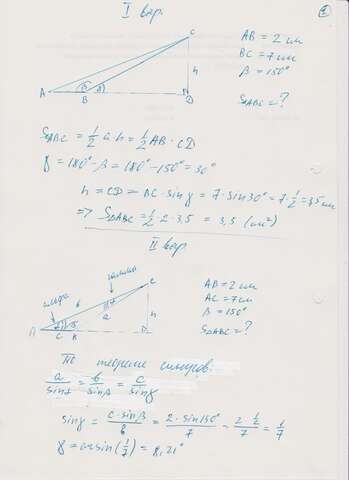 I вар.
1
C
A
B
D
h
β
γ
AB = 2 см
BC = 7 см
β = 150°
S△ABC = ?
S△ABC = 1/2 a·h = 1/2 AB · CD
γ = 180° - β = 180° - 150° = 30°
h = CD = BC · sin γ = 7 · sin 30° = 7 · 1/2 = 3,5 см
=> S△ABC = 1/2 · 2 · 3,5 = 3,5 (см²)
II вар
гамма
альфа
C
b
a
h
A
c
B
D
AB = 2 см
AC = 7 см
β = 150°
S△ABC = ?
По теореме синусов
a/sin α = b/sin β = c/sin γ
sin γ = c · sin β / b = 2 · sin 150° / 7 = 2 · 1/2 / 7 = 1/7
γ = arcsin (1/7) = 8,21°